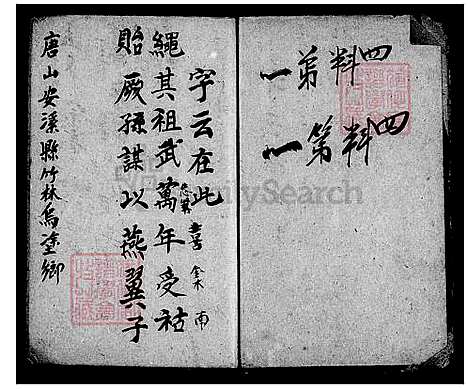 四料第一
四料第一
字云在此 喜 南
繩其祖武萬年受祜
貽厥孫謀以燕翼子
唐山安溪縣竹林烏塗鄉
FamilySearch